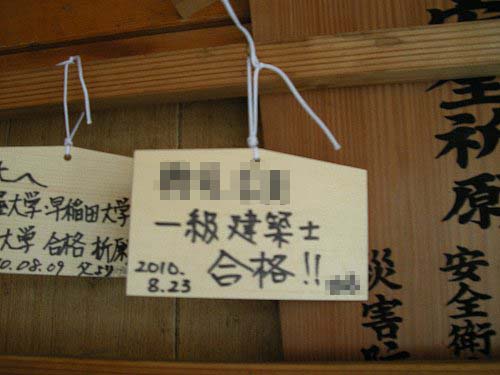 大学・早稲田大学
大学 合格 祈原
0.08.09 父より
一級建築士
合格!!
2010.
8.23
全祈原
安全衛
災害防